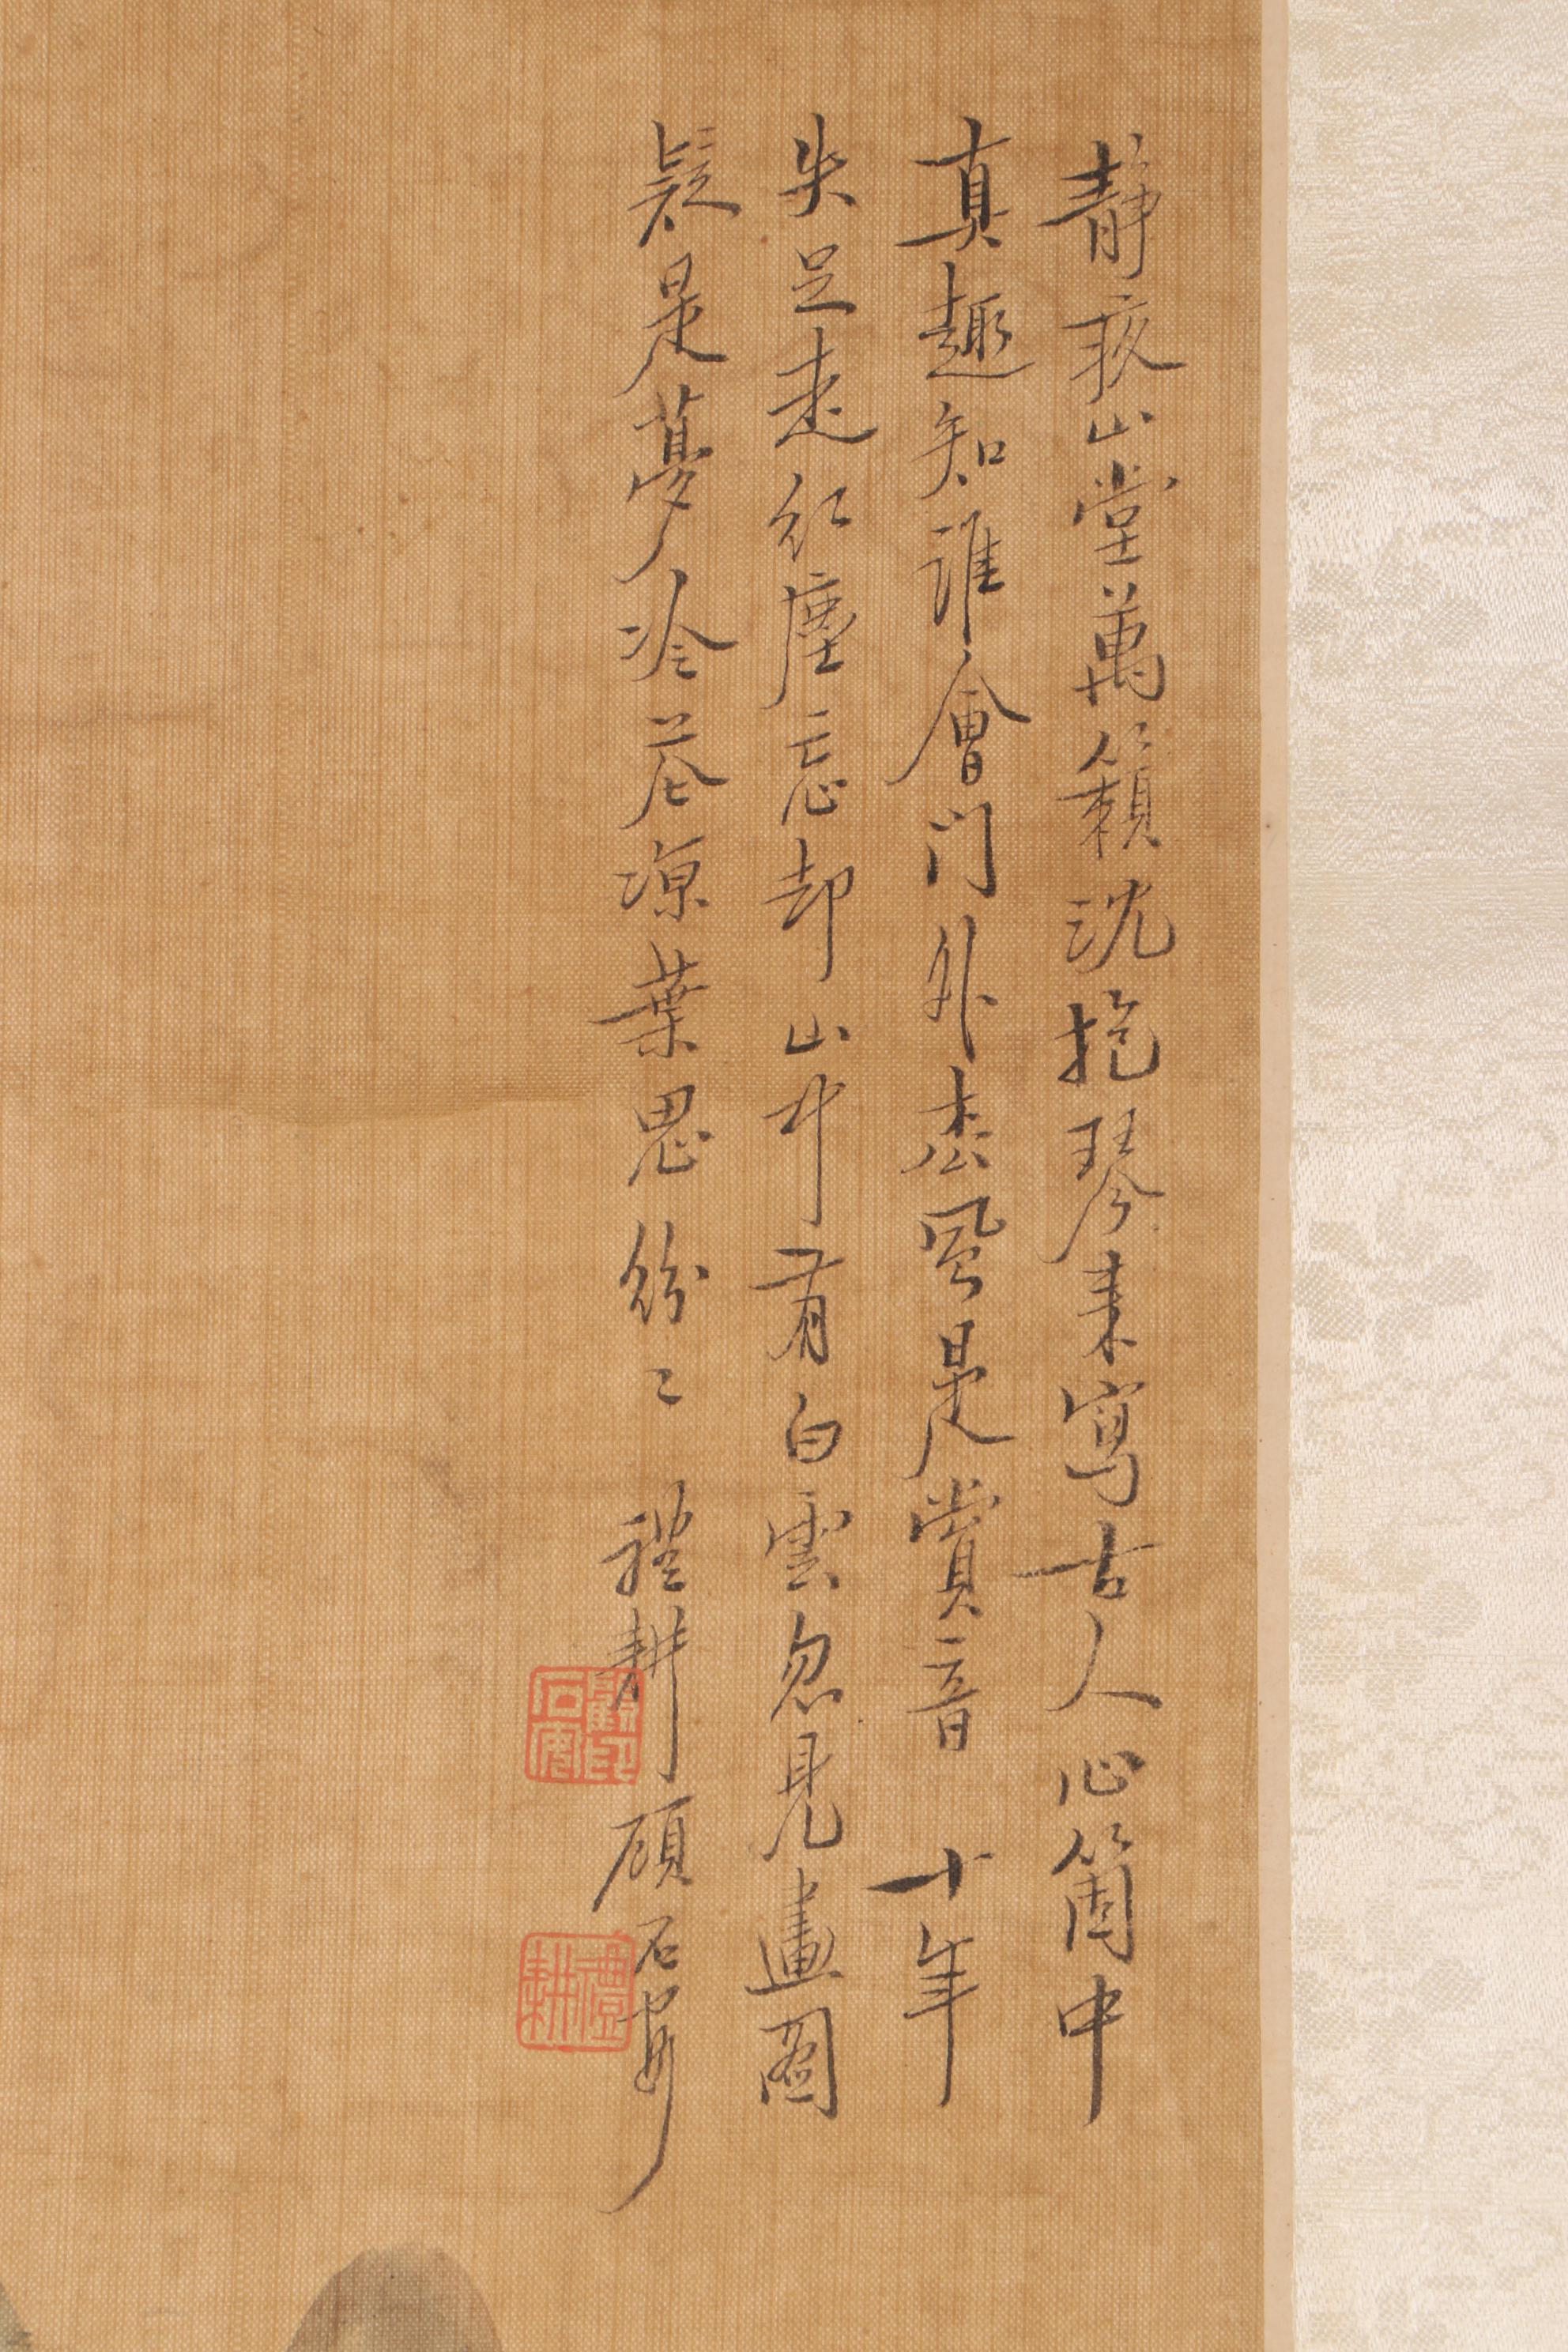 靜夜山堂萬籟沈抱琴来寫古人心箇中
真趣知誰會門外松風是賞音 十年
失足走紅塵忘却山中有白雲忽見畫圖
疑是夢冷花凉葉思紛〻 禮耕顧石
禮耕